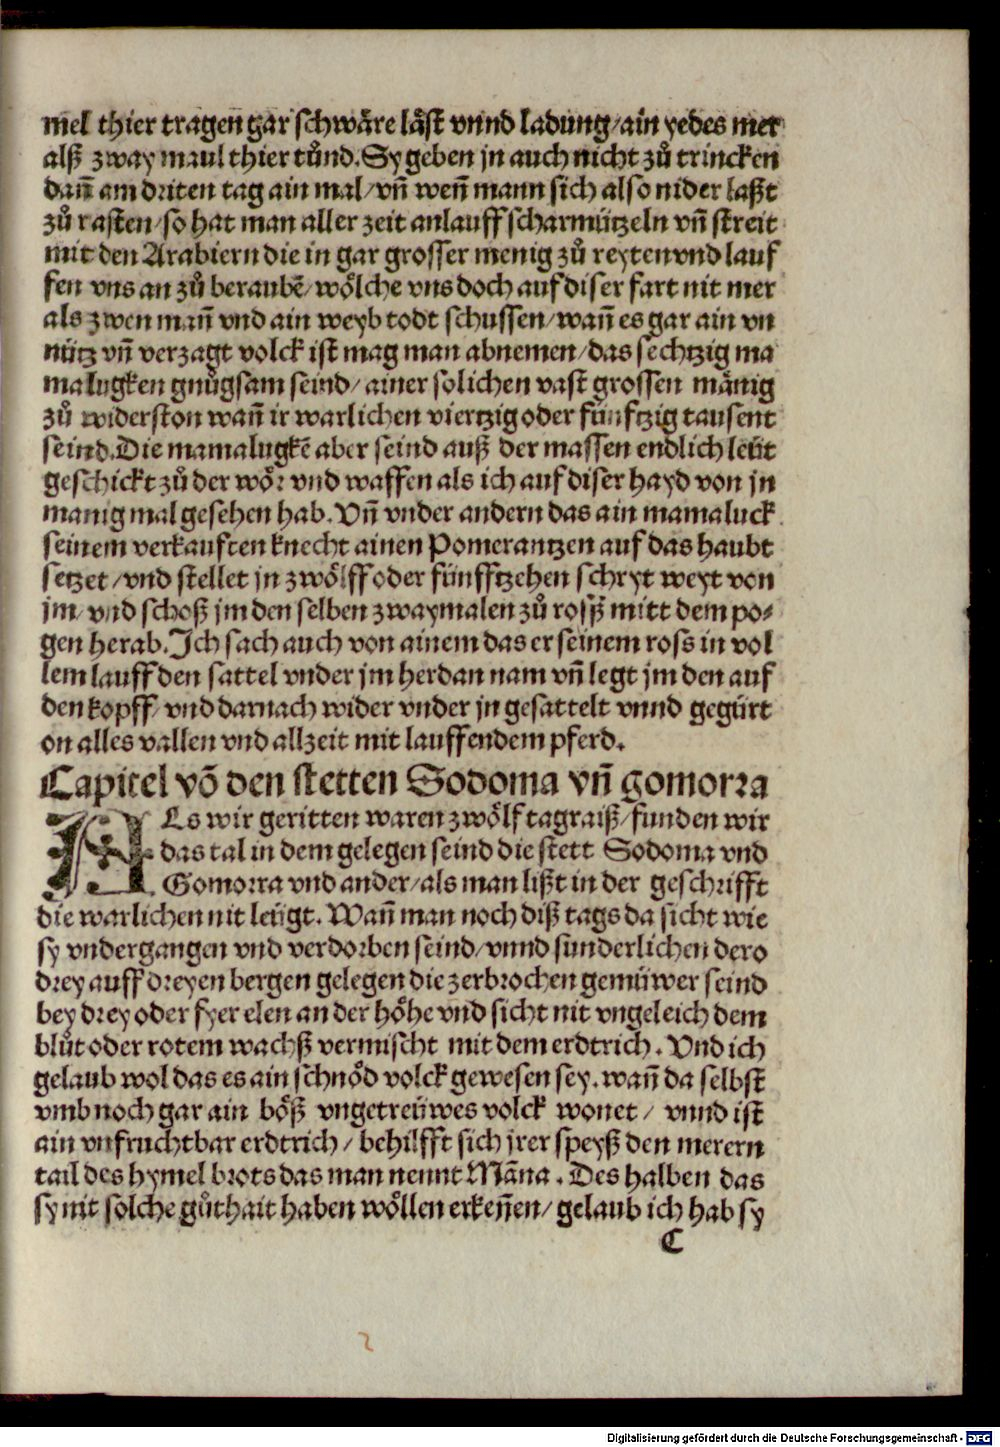 mel thier tragen gar schwäre låst vnnd ladung/ain yedes mer
alß zway maul thier tůnd. Sy geben jn auch nicht zů trincken
dañ am driten tag ain mal/vñ weñ mann sich also nider laßt
zů rasten/so hat man aller zeit anlauff scharmützeln vñ streit
mit den Arabiern die in gar grosser menig zů reyten vnd lauf
fen vns an zů beraubē/wölche vns doch auf diser fart nit mer
als zwen mañ vnd ain weyb todt schussen/wañ es gar ain vn
nütz vñ verzagt volck ist mag man abnemen/das sechtzig ma
malugken gnůgsam seind/ainer solichen vast grossen mänig
zů widerston wañ ir warlichen viertzig oder fünftzig tausent
seind. Die mamalugkē aber seind auß der massen endlich leüt
geschickt zů der wör vnd waffen als ich auf diser hayd von jn
manig mal gesehen hab. Vñ vnder andern das ain mamaluck
seinem verkauften knecht ainen Pomerantzen auf das haubt
setzet/vnd stellet jn zwölff oder fünfftzehen schryt weyt von
jm/vnd schoß jm den selben zwaymalen zů roß mitt dem po⸗
gen herab. Ich sach auch von ainem das er seinem ross in vol
lem lauff den sattel vnder jm herdan nam vñ legt jm den auf
den kopff/vnd darnach wider vnder jn gesattelt vnnd gegürt
on alles vallen vnd allzeit mit lauffendem pferd.
Capitel vō den stetten Sodoma vñ gomorra
ALs wir geritten waren zwölf tagraiß/funden wir
das tal in dem gelegen seind die stett Sodoma vnd
Gomorra vnd ander/als man lißt in der geschrifft
die warlichen nit leügt. Wañ man noch diß tags da sicht wie
sy vndergangen vnd verdorben seind/vnnd sunderlichen dero
drey auff dreyen bergen gelegen die zerbrochen gemüwer seind
bey drey oder fyer elen an der höhe vnd sicht nit vngeleich dem
blůt oder rotem wachß vermischt mit dem erdtrich. Vnd ich
gelaub wol das es ain schnöd volck gewesen sey. wañ da selbst
vmb noch gar ain böß vngetreüwes volck wonet/ vnnd ist
ain vnfruchtbar erdtrich/ behilfft sich jrer speyß den merern
tail des hymel brots das man nennt Māna. Des halben das
sy nit solche gůthait haben wöllen erkeñen/gelaub ich hab sy
C
2
Digitalisierung gefördert durch die Deutsche Forschungsgemeinschaft - DFG